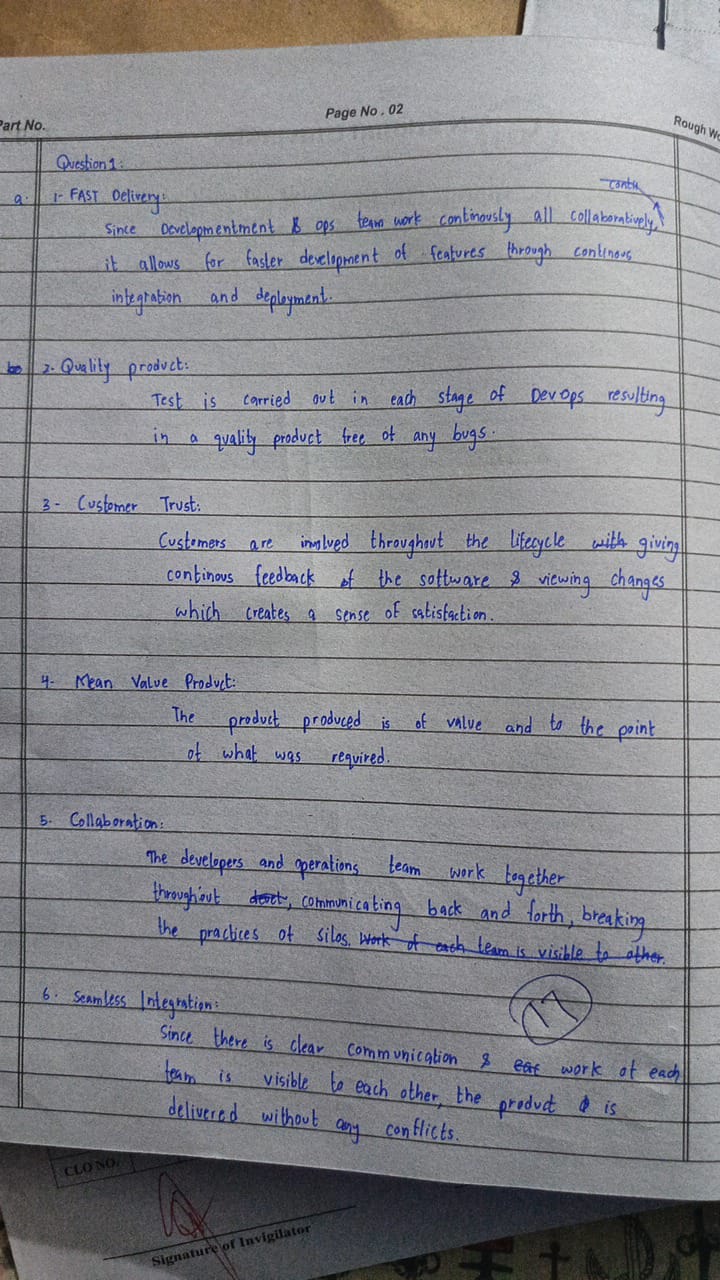 Part No.
Page No. 02
Rough Wo
Question 1:
a. 1- FAST Delivery:
contu
Since Developmentment & ops team work continously all collaboratively,
it allows for faster development of features through continous
integration and deployment.
2. Quality product:
Test is carried out in each stage of DevOps resulting
in a quality product free of any bugs.
3- Customer Trust:
Customers are involved throughout the lifecycle with giving
continous feedback of the software & viewing changes
which creates a sense of satisfaction.
4- Mean Value Product:
The product produced is of value and to the point
of what was required.
5. Collaboration:
The developers and operations team work together
throughout, communicating back and forth, breaking
the practices of silos. Work of each team is visible to other.
6. Seamless Integration:
Since there is clear communication & work of each
team is visible to each other, the product is
delivered without any conflicts.
CLO NO.
Signature of Invigilator